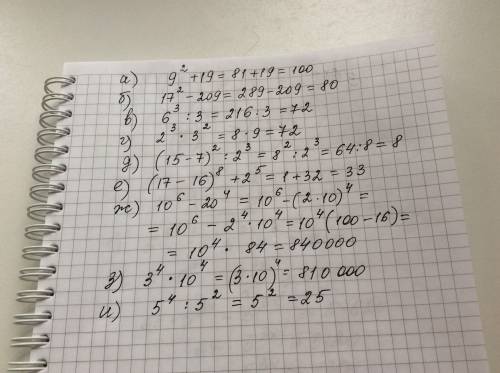 а) 9² + 19 = 81 + 19 = 100
б) 17² - 209 = 289 - 209 = 80
в) 6³ : 3 = 216 : 3 = 72
г) 2³ · 3² = 8 · 9 = 72
д) (15 - 7)² : 2³ = 8² : 2³ = 64 : 8 = 8
е) (17 - 16)⁸ + 2⁵ = 1 + 32 = 33
ж) 10⁶ - 20⁴ = 10⁶ - (2 · 10)⁴ =
= 10⁶ - 2⁴ · 10⁴ = 10⁴ (100 - 16) =
= 10⁴ · 84 = 840000
з) 3⁴ · 10⁴ = (3 · 10)⁴ = 810 000
и) 5⁴ : 5² = 5² = 25